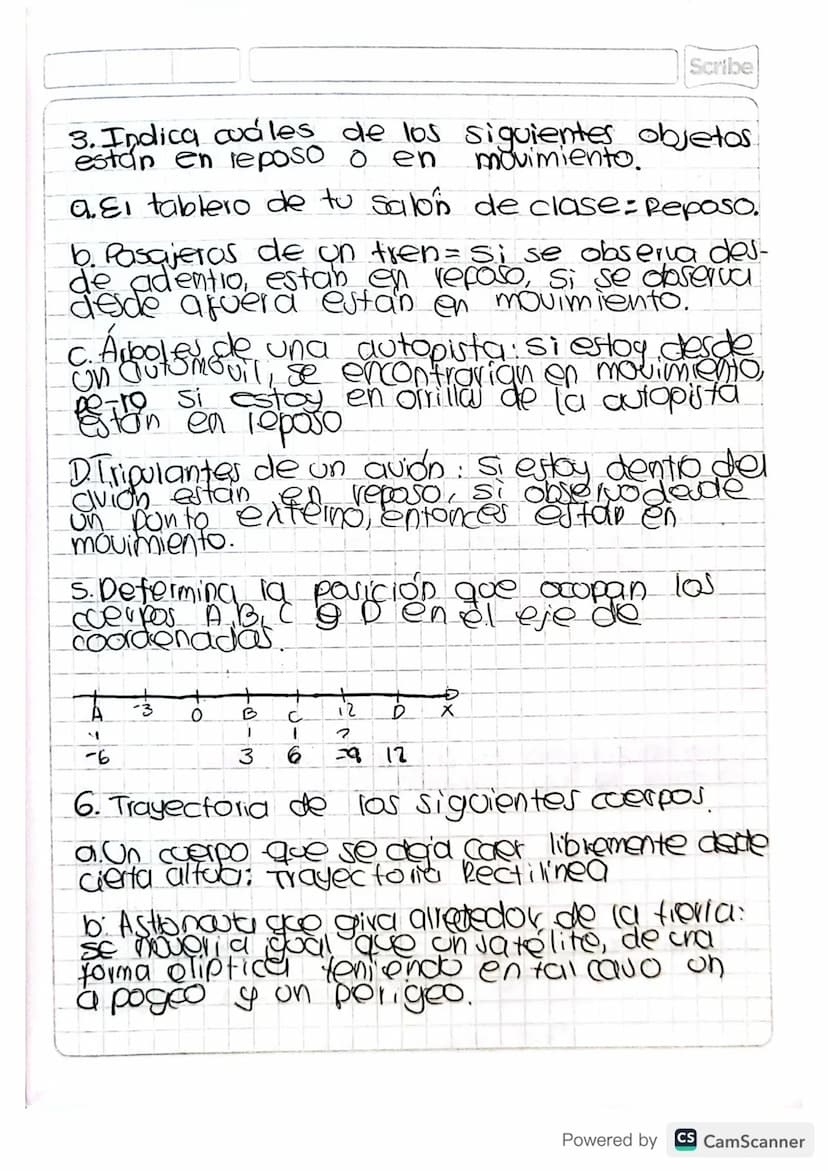 Scribe
3. Indica cuáles de los siguientes objetos
están en reposo o en movimiento.
a. El tablero de tu salón de clase = Reposo.
b. Pasajeros de un tren = si se observa des-
de adentro, están en reposo, si se observa
desde afuera están en movimiento.
c. Árboles de una autopista: si estoy desde
un automóvil, se encontrarían en movimiento,
pe-ro si estoy en orrilla de la autopista
están en reposo
D. Tripulantes de un avión: si estoy dentro del
avión están en reposo, si observo desde
un punto externo, entonces están en
movimiento.
5. Determina la posición que ocupan los
cuerpos A, B, C y D en el eje de
coordenadas.
A -3 0 B C 12 D X
-6 3 6 =9 12
6. Trayectoria de los siguientes cuerpos.
a. Un cuerpo que se deja caer libremente desde
cierta altura: Trayectoria Rectilínea
b. Astronauta que gira alrededor de la tierra:
se movería igual que un satélite, de una
forma elíptica teniendo en tal caso un
apogeo y un perigeo.
Powered by CS CamScanner